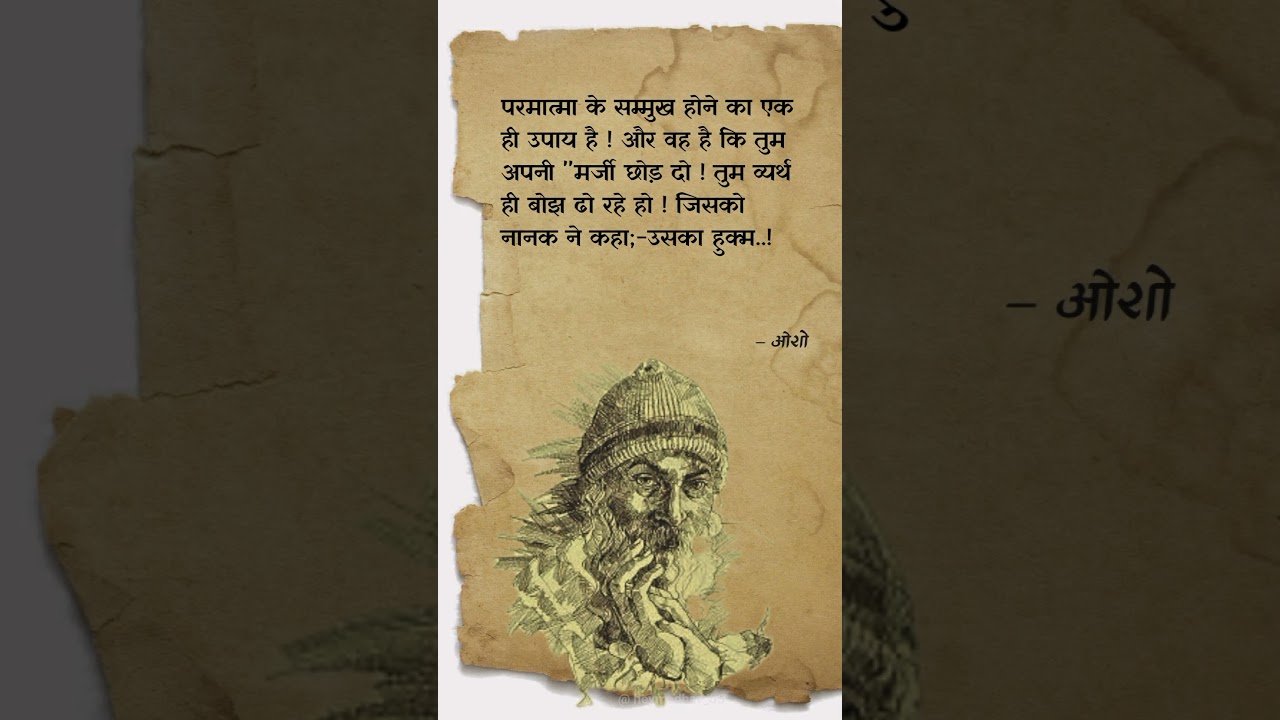 परमात्मा के सम्मुख होने का एक
ही उपाय है ! और वह है कि तुम
अपनी "मर्जी छोड़ दो ! तुम व्यर्थ
ही बोझ ढो रहे हो ! जिसको
नानक ने कहा;-उसका हुक्म..!
– ओशो
– ओशो